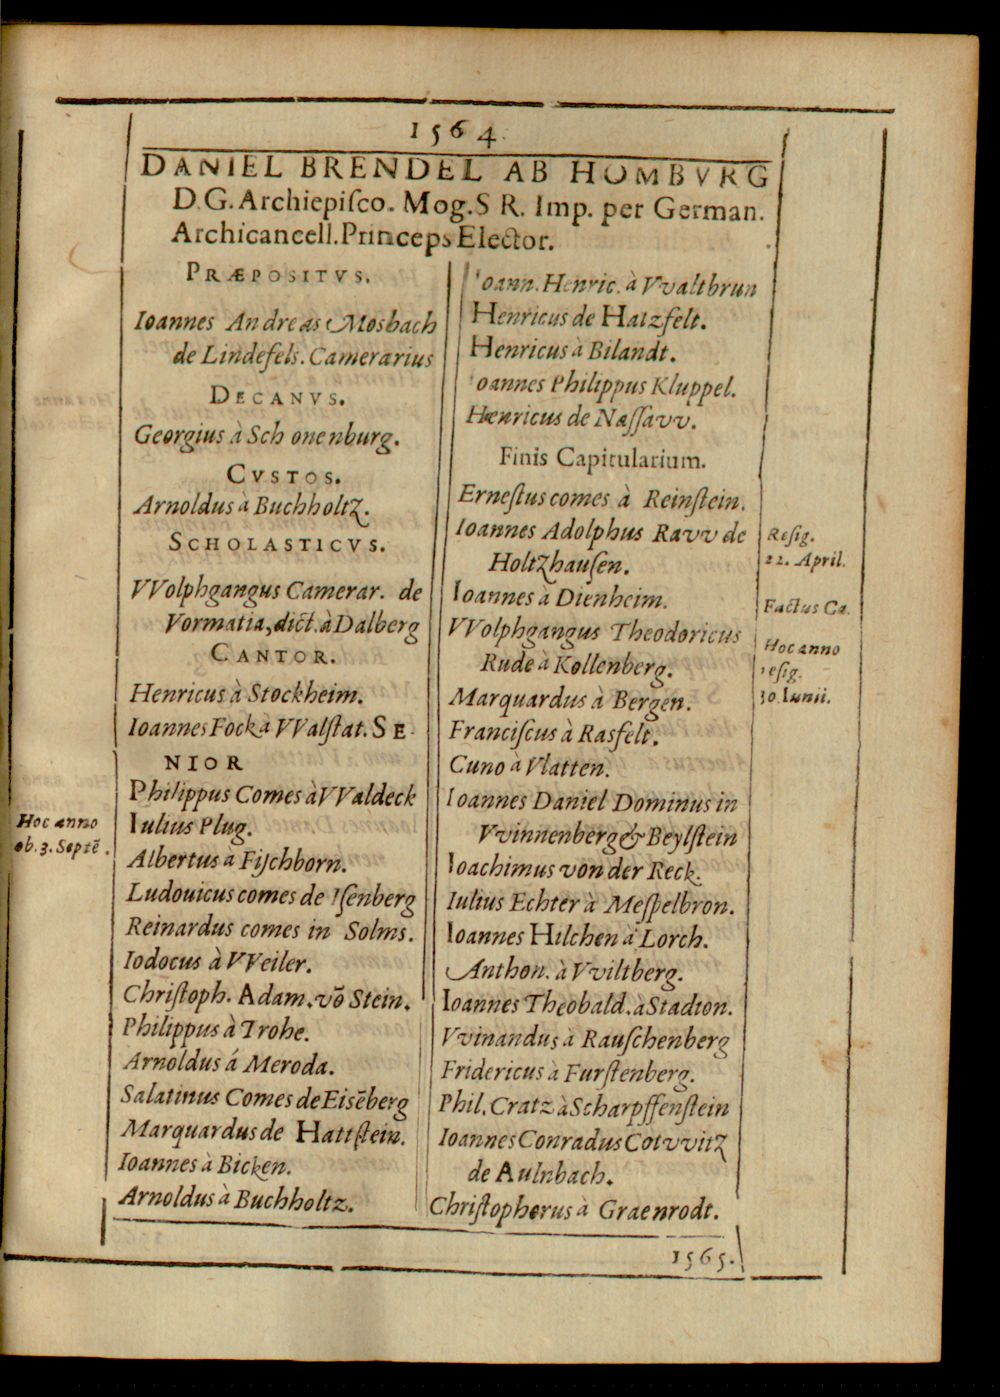 1564.
DANIEL BRENDEL AB HOMBVRG
D.G. Archiepiſco. Mog. S R. Imp. per German.
Archicancell. Princeps Elector.
PRÆPOSITVS.
Ioannes Andreas Mosbach
de Lindefels. Camerarius
DECANVS.
Georgius à Sch onenburg.
CVSTOS.
Arnoldus à Buchholtz.
SCHOLASTICVS.
VVolphgangus Camerar. de
Vormatia, dict. à Dalberg
CANTOR.
Henricus à Stockheim.
Ioannes Fock à VValſtat. SE-
NIOR
Philippus Comes à VValdeck
Iulius Plug.
Hoc anno
ob. 3. Septē.
Albertus a Fiſchborn.
Ludouicus comes de Iſenberg
Reinardus comes in Solms.
Iodocus à VVeiler.
Chriſtoph. Adam. vō Stein.
Philippus à Trohe.
Arnoldus á Meroda.
Salatinus Comes de Eisēberg
Marquardus de Hattſtein.
Ioannes à Bicken.
Arnoldus à Buchholtz.
oann. Henric. à Vvaltbrun
Henricus de Hatzfelt.
Henricus à Bilandt.
oannes Philippus Kluppel.
Henricus de Naſſavv.
Finis Capitularium.
Erneſtus comes à Reinſtein.
Ioannes Adolphus Ravv de
Holtzhauſen.
Reſig.
22. April.
Ioannes à Dienheim.
Factus Ca.
VVolphgangus Theodoricus
Rude à Kollenberg.
Hoc anno
reſig.
30. Iunii.
Marquardus à Bergen.
Franciſcus à Rasfelt.
Cuno à Vlatten.
Ioannes Daniel Dominus in
Vvinnenberg & Beylſtein
Ioachimus von der Reck.
Iulius Echter à Meſpelbron.
Ioannes Hilchen à Lorch.
Anthon. à Vviltberg.
Ioannes Theobald. a Stadion.
Vvinandus à Rauſchenberg
Fridericus à Furſtenberg.
Phil. Cratz à Scharpffenſtein
Ioannes Conradus Cotvvitz
de Aulnbach.
Chriſtophorus à Graenrodt.
1565.